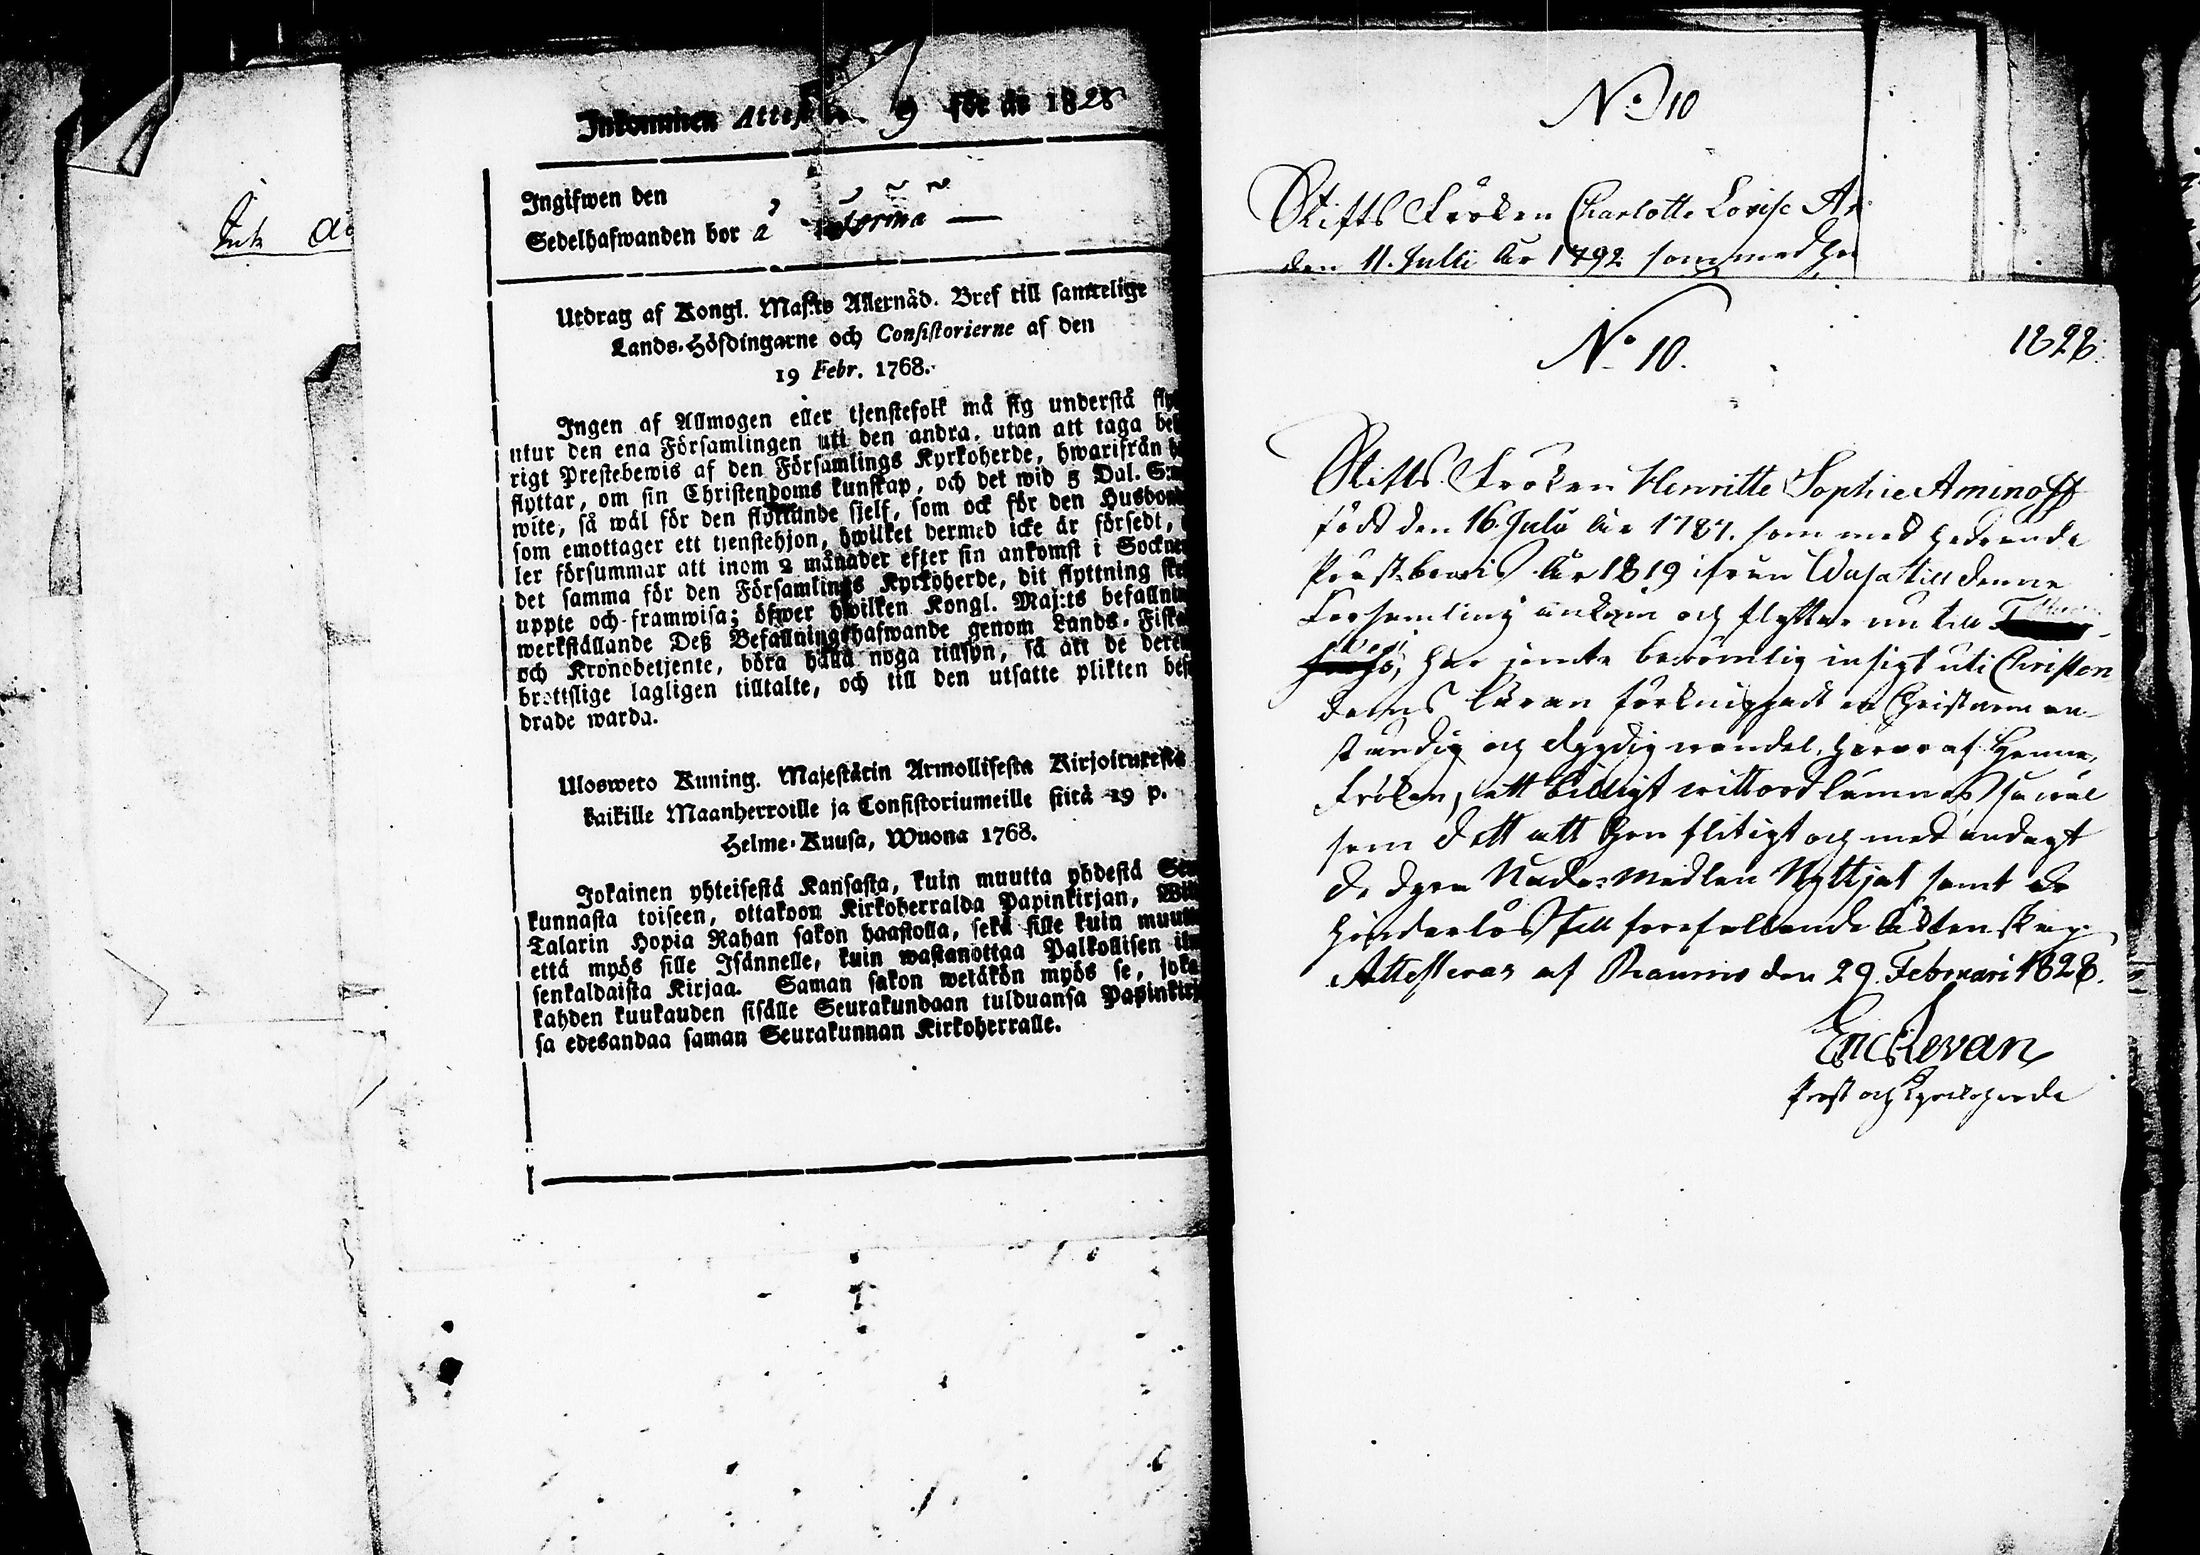 Inkommen Attest 9 för år 1828
Ingifwen den
Sedelhafwanden bor å
Utdrag af Kongl. Maj:ts Allernåd. Bref till samtelige
Lands-Höfdingarne och Consistorierne af den
19 Febr. 1768.
Ingen af Allmogen eller tjenstefolk må sig understå fly
utur den ena Församlingen uti den andra, utan att taga be
rigt Prestebewis af den Församlings Kyrkoherde, hwarifrån
flyttar, om sin Christendoms kunskap, och det wid 5 Dal. S:
wite, så wäl för den flyttande sjelf, som ock för den Husbon
som emottager ett tjenstehjon, hwilket dermed icke är försedt,
ler försummar att inom 2 månader efter sin ankomst i Sockne
det samma för den Församlings Kyrkoherde, dit flyttning ske
uppte och framwisa; öfwer hwilken Kongl. Maj:ts befallnin
werkställande Deß Befallningshafwande genom Lands-Fiska
och Kronobetjente, böra hålla noga tillsyn, så att de dere
brottslige lagligen tilltalte, och till den utsatte plikten bef
drade warda.
Ulosweto Kuning. Majestätin Armollisesta Kirjoituxesta
kaikille Maanherroille ja Consistoriumeille siitä 19 p.
Helme-Kuusa, Wuona 1768.
Jokainen yhteisestä Kansasta, kuin muutta yhdestä Seu
kunnasta toiseen, ottakoon Kirkoherralda Papinkirjan, Wii
Talarin Hopia Rahan sakon haastolla, sekä sille kuin muut
että myös sille Isännelle, kuin wastanottaa Palkollisen ilm
senkaldaista Kirjaa. Saman sakon wetäkön myös se, joka
kahden kuukauden sisälle Seurakundaan tulduansa Papinkirj
sa edesandaa saman Seurakunnan Kirkoherralle.
No 10
Stifts Fröken Charlotte Lovise A
den 11. Julii år 1792 som med he
No 10. 1828.
Stifts Fröken Henritte Sophie Aminoff
född den 16. Julii år 1787. som med hedrande
Prästbewis år 1819 ifrån Wasa till denna
Församling ankom och flyttar nu till
har jemte berömlig insigt uti Christen
doms läran förknippadt en Christarne an-
ständig och dygdig wandel, hwaraf Henne,
Fröken, ett billigt wittord lämnas så wäl
som dett att Hon flitigt och med andagt
de dyra Nådes Medlen Nyttjat samt är
hinderlös till förefallande Äktenskap.
Attesteras af Raumo den 29. Februari 1828.
Eric Revan
Prost och Kyrkoherde